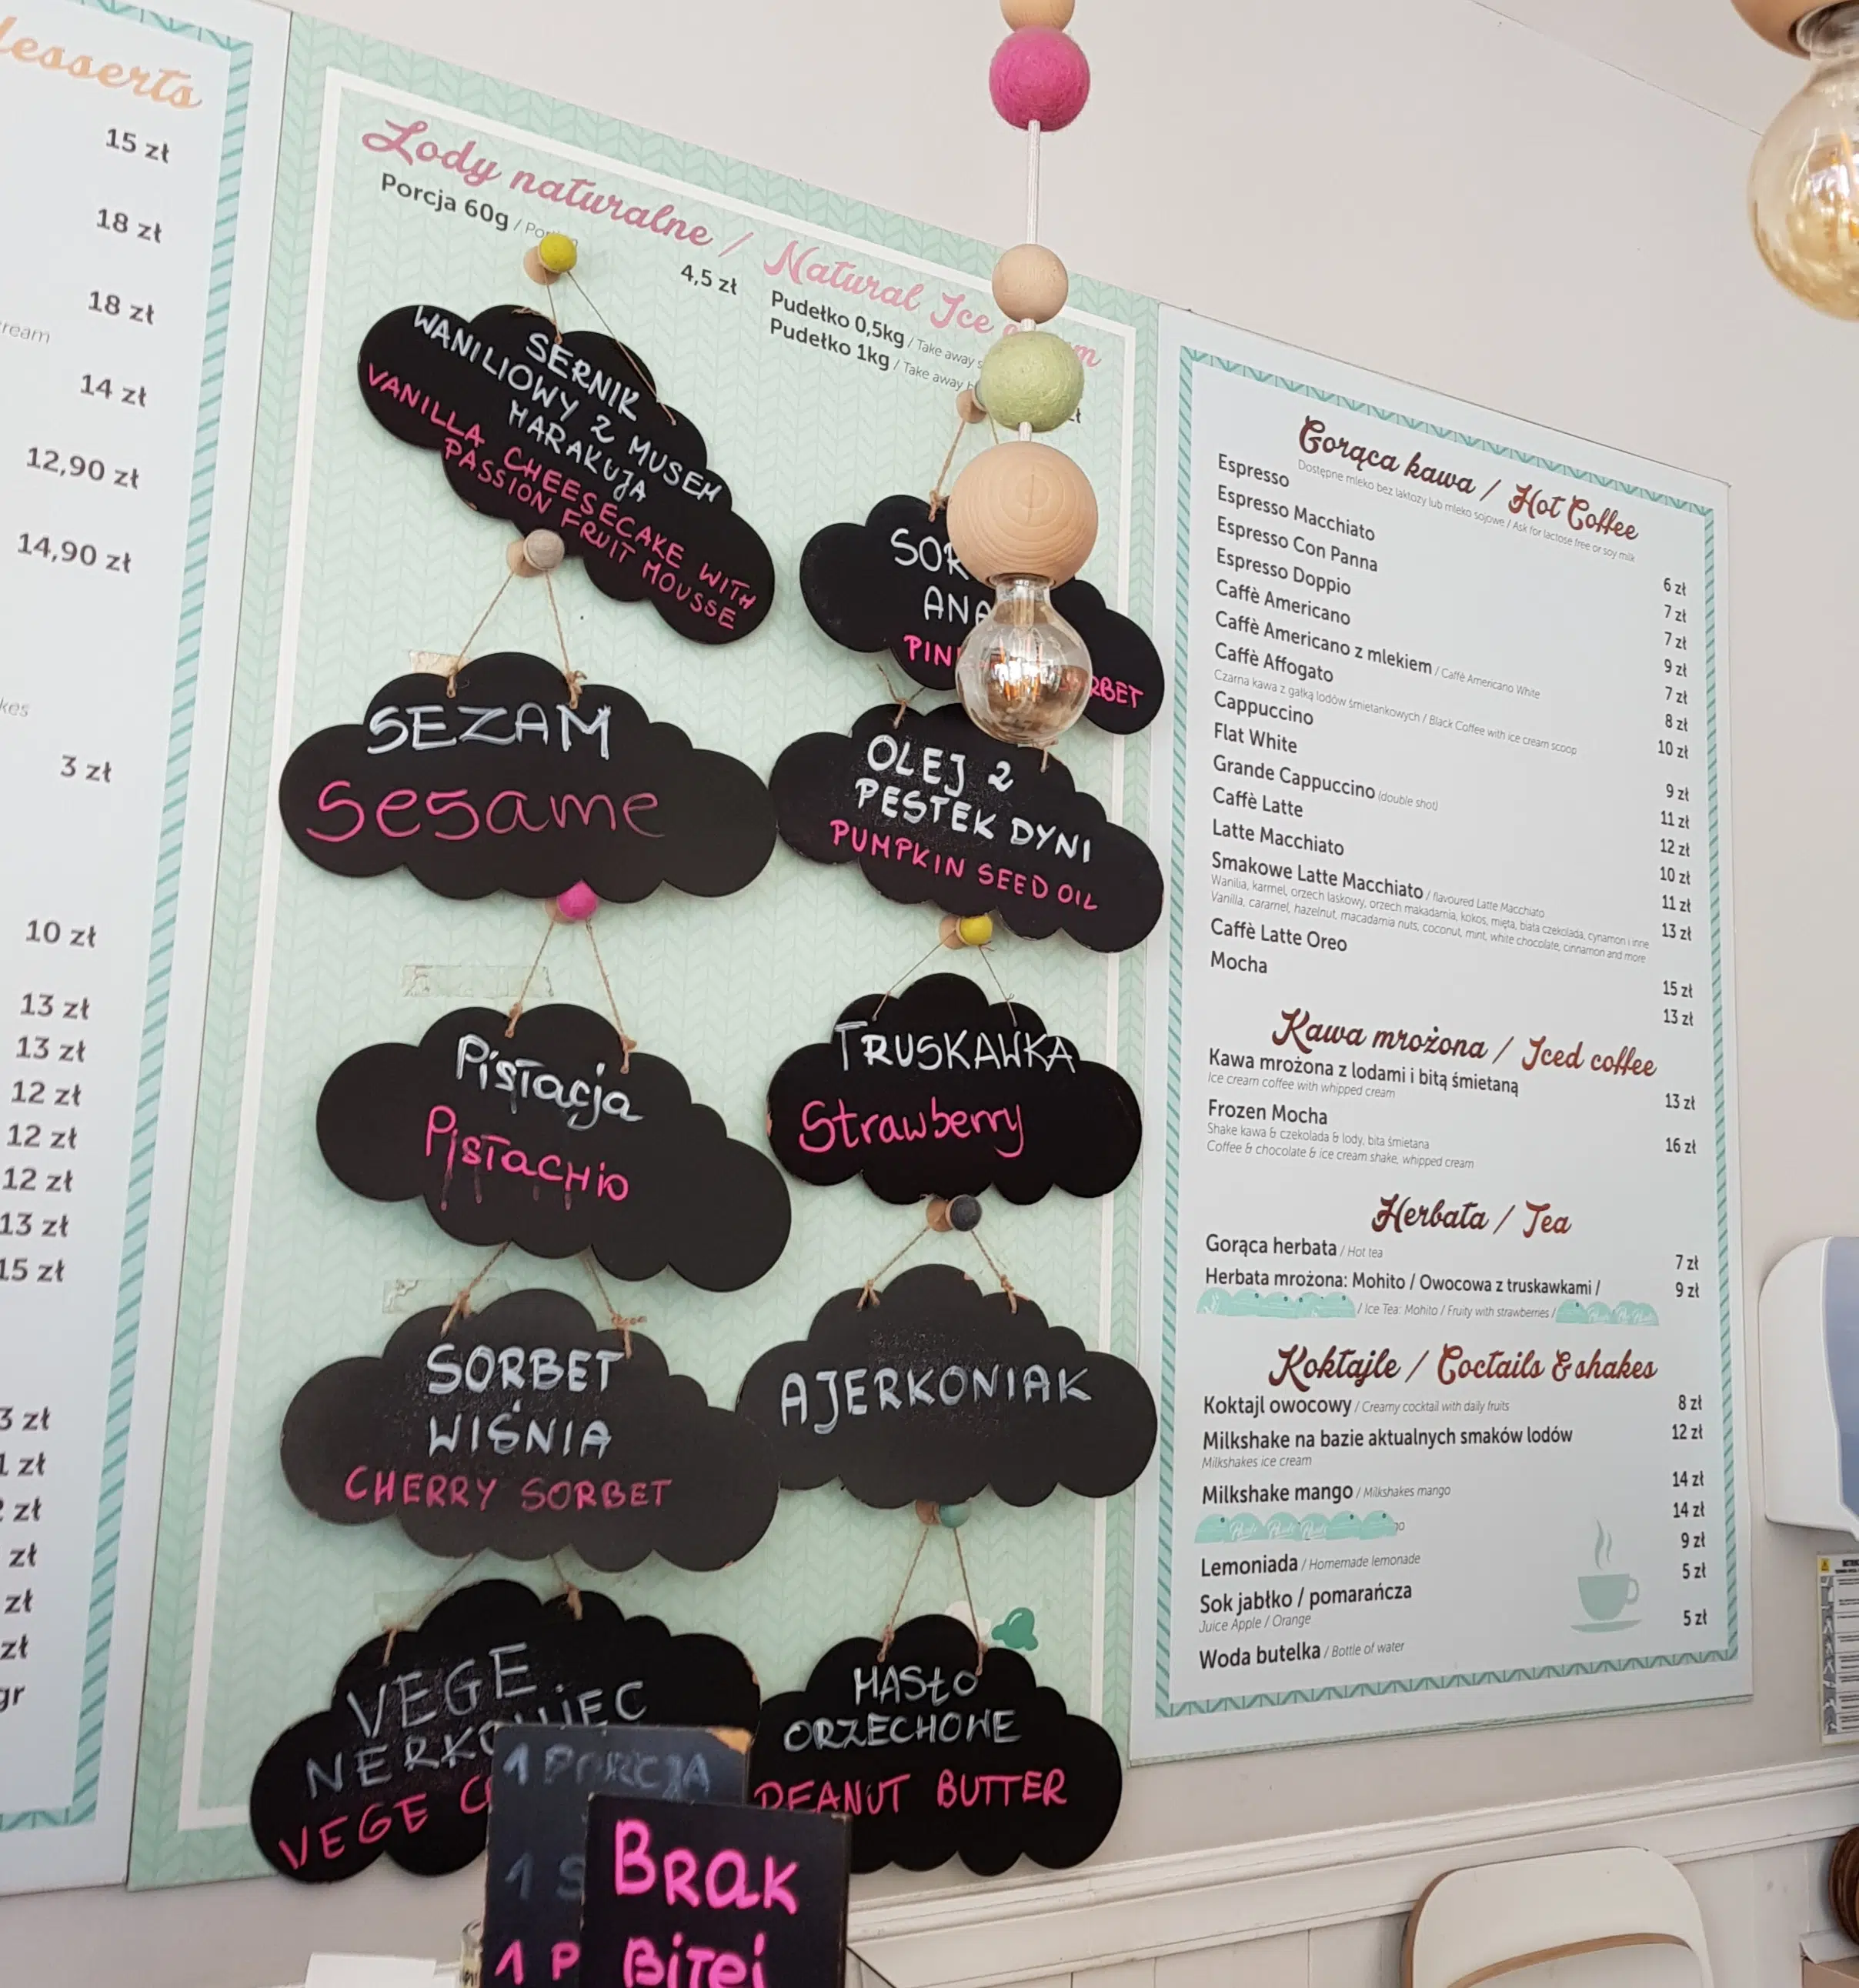 desserts
15 zł
18 zł
18 zł
14 zł
12,90 zł
14,90 zł
3 zł
10 zł
13 zł
13 zł
12 zł
12 zł
12 zł
13 zł
15 zł
zł
zł
zł
zł
zł
zł
gr
Lody naturalne / Natural Ice
Porcja 60g /
4,5 zł
Pudełko 0,5kg / Take away
Pudełko 1kg / Take away
SERNIK
WANILIOWY Z MUSEM
MARAKUJA
VANILLA CHEESECAKE WITH
PASSION FRUIT MOUSSE
SEZAM
Sesame
Pistacja
PISTACHIO
SORBET
WIŚNIA
CHERRY SORBET
VEGE
NERKOWIEC
VEGE
OLEJ Z
PESTEK DYNI
PUMPKIN SEED OIL
TRUSKAWKA
Strawberry
AJERKONIAK
MASŁO
ORZECHOWE
PEANUT BUTTER
1 PORCJA
1
1 P
BRAK
BITEJ
Gorąca kawa / Hot Coffee
Dostępne mleko bez laktozy lub mleko sojowe / Ask for lactose free or soy milk
Espresso 6 zł
Espresso Macchiato 7 zł
Espresso Con Panna 7 zł
Espresso Doppio 9 zł
Caffè Americano 7 zł
Caffè Americano z mlekiem / Caffè Americano White 8 zł
Caffè Affogato 10 zł
Czarna kawa z gałką lodów śmietankowych / Black Coffee with ice cream scoop
Cappuccino 9 zł
Flat White 11 zł
Grande Cappuccino (double shot) 12 zł
Caffè Latte 10 zł
Latte Macchiato 11 zł
Smakowe Latte Macchiato / flavoured Latte Macchiato 13 zł
Wanilia, karmel, orzech laskowy, orzech makadamia, kokos, mięta, biała czekolada, cynamon i inne
Vanilla, caramel, hazelnut, macadamia nuts, coconut, mint, white chocolate, cinnamon and more
Caffè Latte Oreo 15 zł
Mocha 13 zł
Kawa mrożona / Iced coffee
Kawa mrożona z lodami i bitą śmietaną 13 zł
Ice cream coffee with whipped cream
Frozen Mocha 16 zł
Shake kawa & czekolada & lody, bita śmietana
Coffee & chocolate & ice cream shake, whipped cream
Herbata / Tea
Gorąca herbata / Hot tea 7 zł
Herbata mrożona: Mohito / Owocowa z truskawkami / 9 zł
/ Ice Tea: Mohito / Fruity with strawberries /
Koktajle / Coctails & shakes
Koktajl owocowy / Creamy cocktail with daily fruits 8 zł
Milkshake na bazie aktualnych smaków lodów 12 zł
Milkshakes ice cream
Milkshake mango / Milkshakes mango 14 zł
14 zł
Lemoniada / Homemade lemonade 9 zł
Sok jabłko / pomarańcza 5 zł
Juice Apple / Orange
Woda butelka / Bottle of water 5 zł